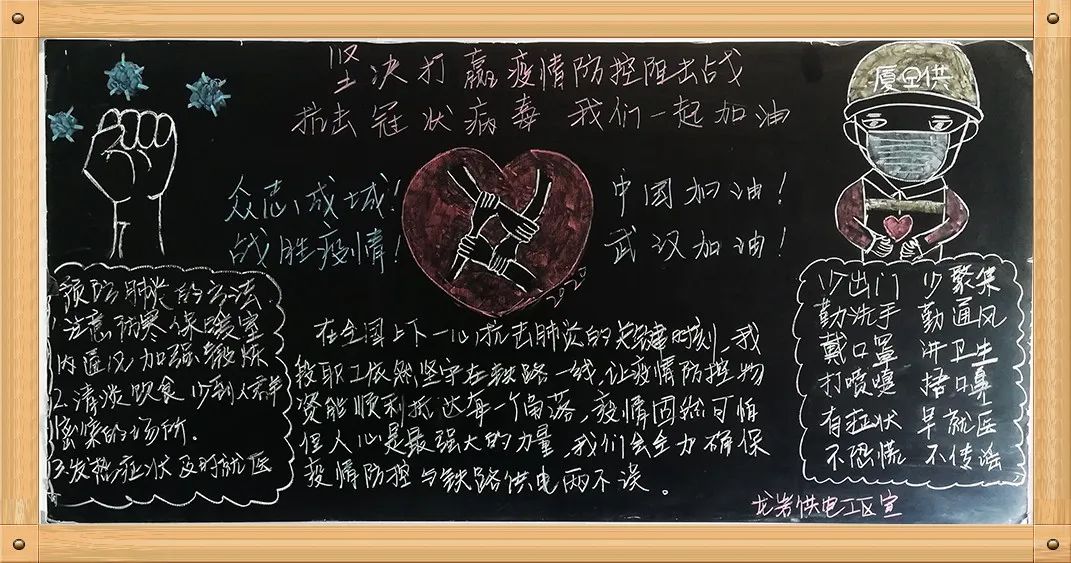 坚决打赢疫情防控阻击战
抗击冠状病毒 我们一起加油
众志成城!
战胜疫情!
中国加油!
武汉加油!
2020
预防肺炎的方法
1.注意防寒保暖室
内通风加强锻炼
2.清淡饮食 少到人群
密集的场所.
3.发热症状及时就医
在全国上下一心抗击肺炎的关键时刻,我
段职工依然坚守在铁路一线,让疫情防控物
资能顺利抵达每一个角落,疫情固然可怕
但人心是最强大的力量,我们会全力确保
疫情防控与铁路供电两不误。
少出门 少聚集
勤洗手 勤通风
戴口罩 讲卫生
打喷嚏 捂口鼻
有症状 早就医
不恐慌 不传谣
龙岩供电工区宣